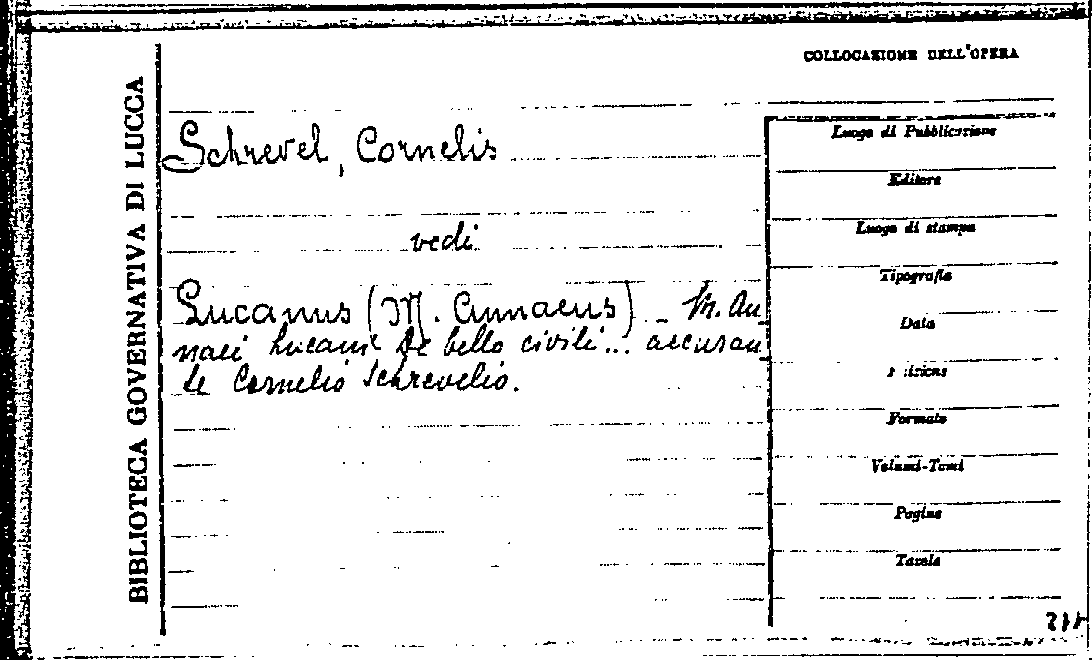 COLLOCAZIONE DELL'OPERA
BIBLIOTECA GOVERNATIVA DI LUCCA
Schrevel, Cornelis
vedi
Lucanus (M. Annaeus) - M. An
naei Lucani de bello civili... accuran
te Cornelio Schrevelio.
Luogo di Pubblicazione
Editore
Luogo di stampa
Tipografia
Data
Formato
Volumi-Tomi
Pagine
Tavole